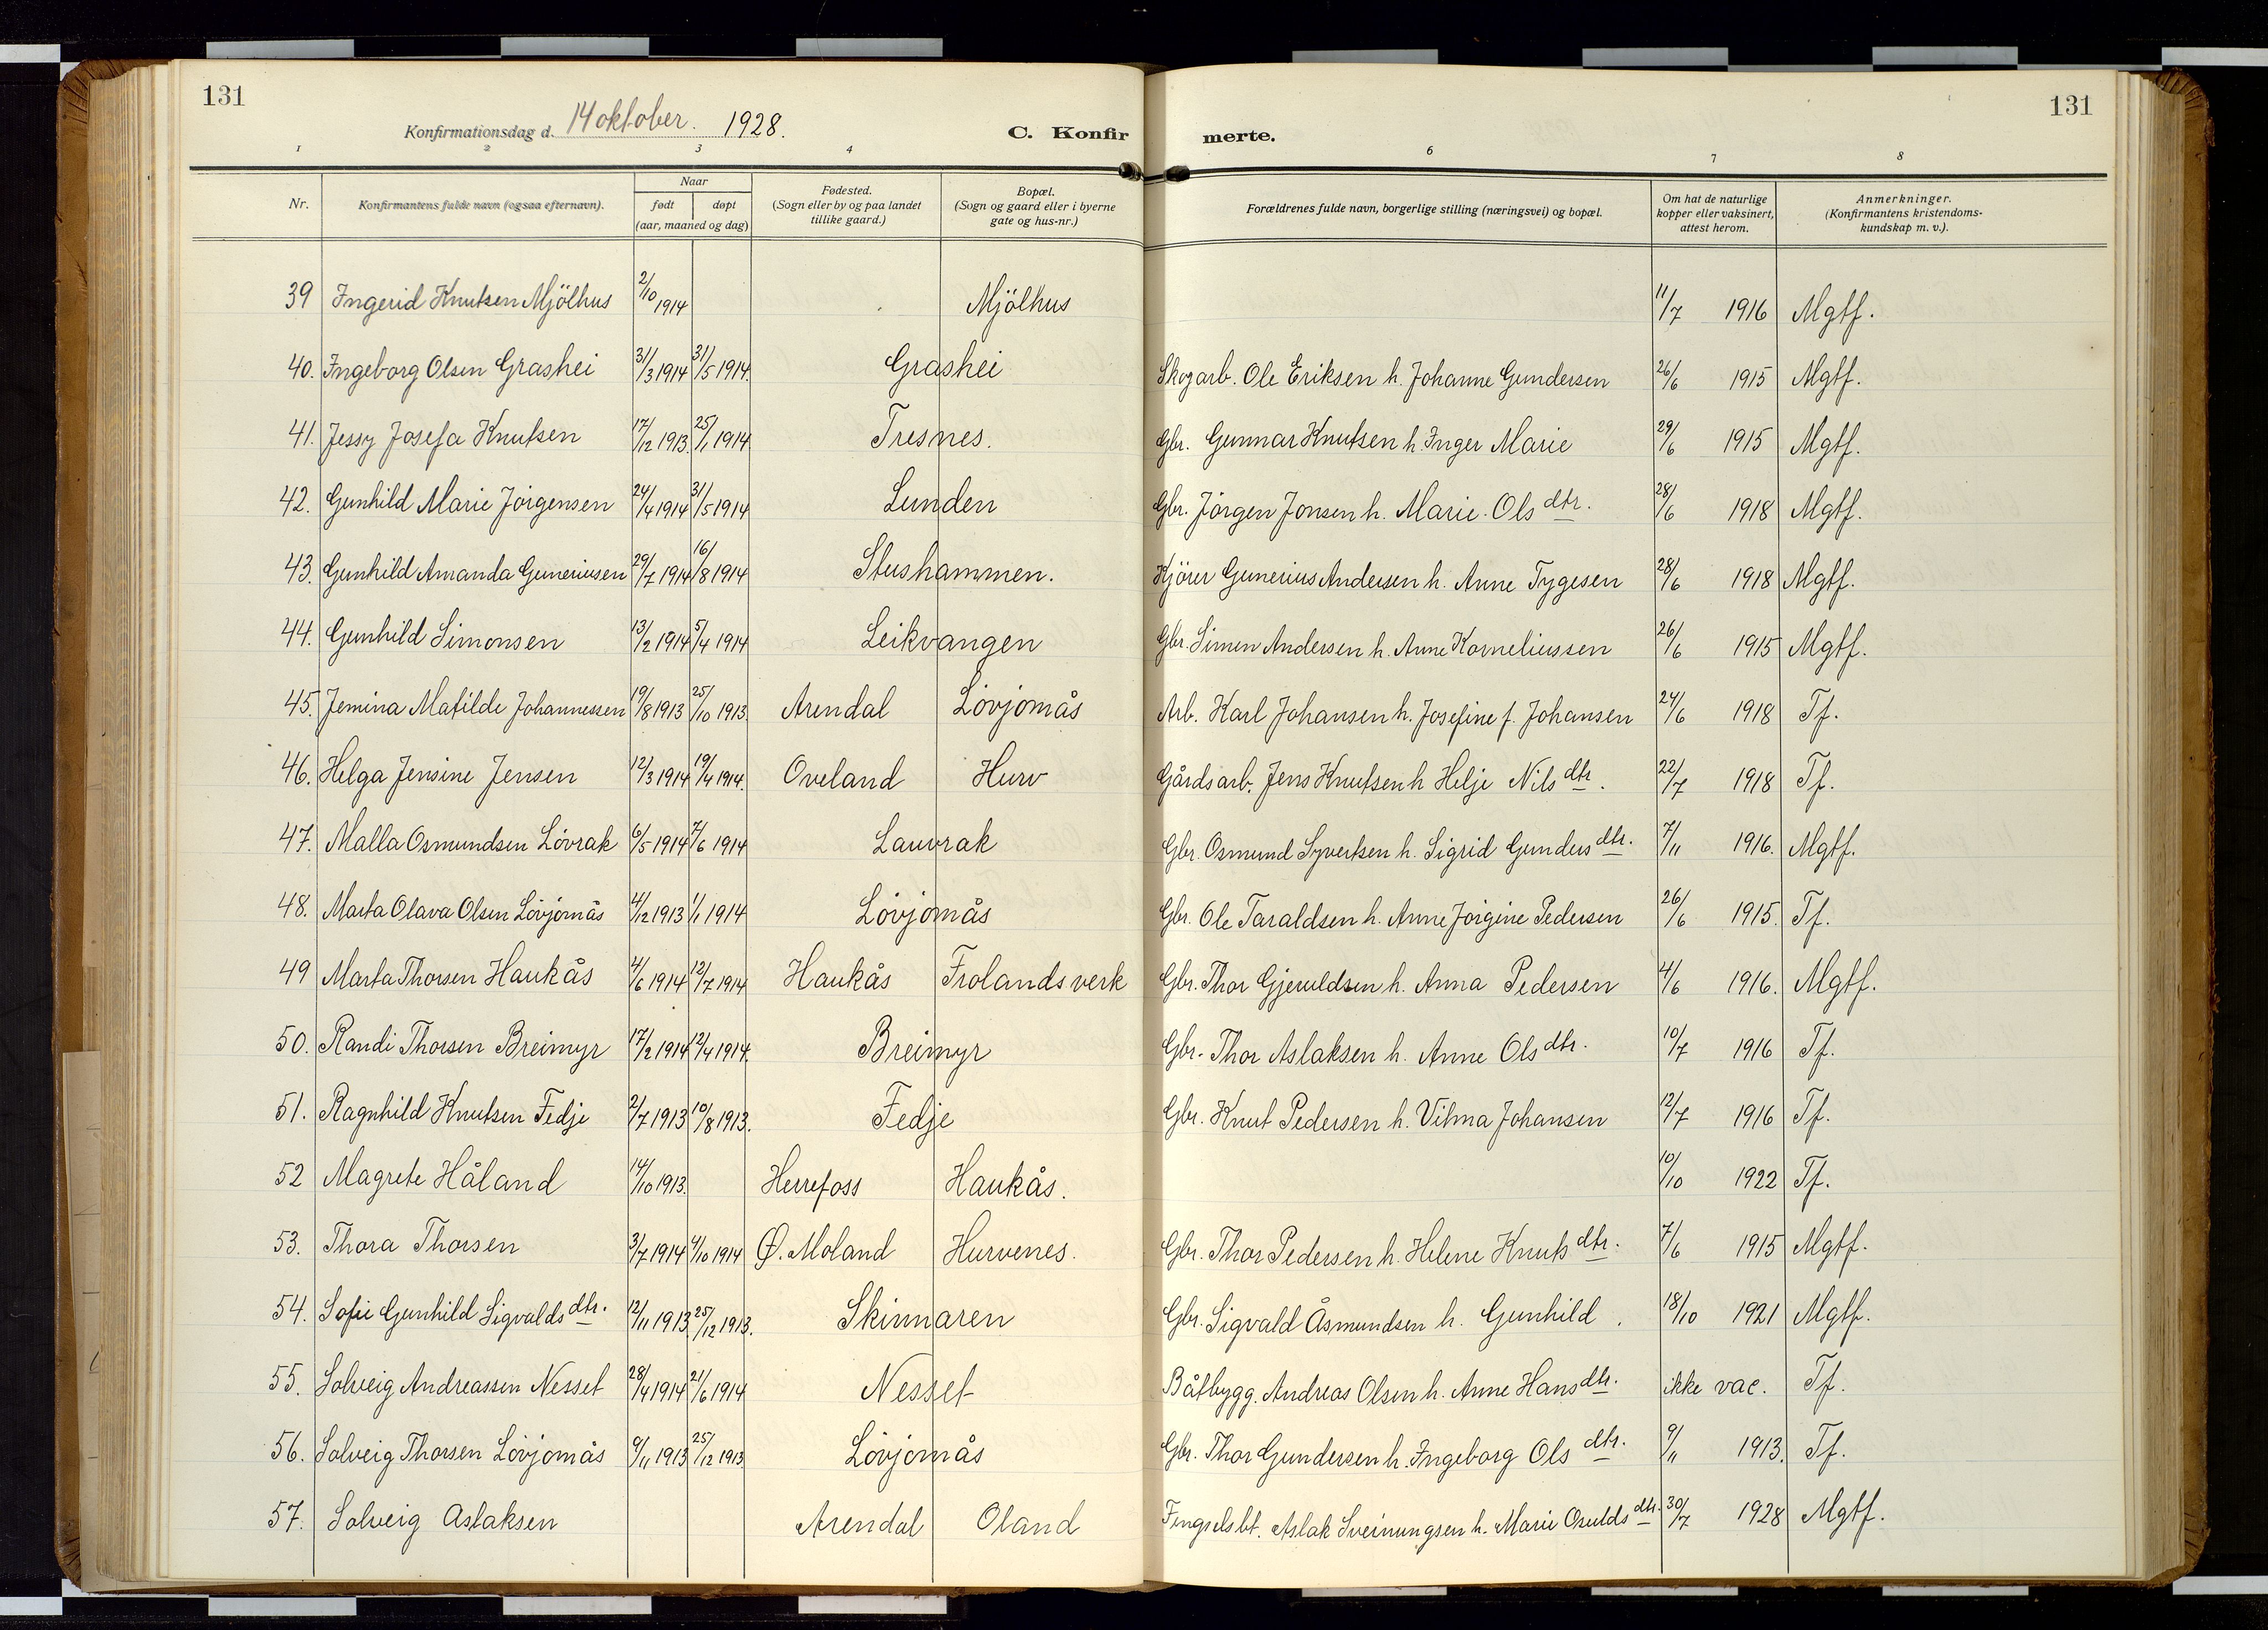 131 131
Konfirmationsdag d. 14 oktober. 1928. C. Konfir merte.
1 2 3 4 6 7 8
Nr. Konfirmantens fulde navn (ogsaa efternavn). Naar født døpt (aar, maaned og dag) Fødested. (Sogn eller by og paa landet tillike gaard.) Bopæl. (Sogn og gaard eller i byerne gate og hus-nr.) Forældrenes fulde navn, borgerlige stilling (næringsvei) og bopæl. Om hat de naturlige kopper eller vaksinert, attest herom. Anmerkninger. (Konfirmantens kristendoms-kundskap m. v.).
39 Ingerid Knutsen Mjölhus 2/10 1914 Mjölhus 11/7 1916 Mgtf.
40. Ingeborg Olsen Grashei 31/3 1914 31/5 1914. Grashei Skogarb. Ole Eriksen h. Johanne Gundersen 26/6 1915 Mgtf.
41. Jessy Josefa Knutsen 17/12 1913. 25/1 1914 Tresnes. Gbr. Gunnar Knutsen h. Inger Marie 29/6 1915 Mgtf.
42. Gunhild Marie Jörgensen 24/4 1914 31/5 1914 Lunden Gbr. Jörgen Jonsen h. Marie Ols dtr. 28/6 1918 Mgtf.
43. Gunhild Amanda Guneriusen 29/7 1914 16/8 1914 Stushammen. Kjörer Gunerius Andersen h. Anne Tygesen 28/6 1918 Mgtf.
44. Gunhild Simonsen 13/2 1914 5/4 1914 Leikvangen Gbr. Simen Andersen h. Anne Korneliussen 26/6 1915 Mgtf.
45. Jemina Matilde Johannessen 19/8 1913 25/10 1913. Arendal Lövjomås Arb. Karl Johansen h. Josefine f. Johansen 24/6 1918 Tf.
46. Helga Jensine Jensen 12/3 1914 19/4 1914. Oveland Hurv Gårdsarb. Jens Knutsen h Helje Nils dtr. 22/7 1918 Tf.
47. Malla Osmundsen Lövrak 6/5 1914 7/6 1914 Lauvrak Gbr. Osmund Syvertsen h. Sigrid Gunders dtr. 7/11 1916. Mgtf.
48. Marta Olava Olsen Lövjomås 4/12 1913 1/1 1914 Lövjomås Gbr. Ole Taraldsen h. Anne Jörgine Pedersen 26/6 1915. Tf.
49 Marta Thorsen Haukås 4/6 1914 12/7 1914 Haukås Frolands verk Gbr. Thor Gjeruldsen h. Anna Pedersen 4/6 1916. Mgtf.
50. Randi Thorsen Breimyr 17/2 1914 12/4 1914. Breimyr Gbr. Thor Aslaksen h. Anne Ols dtr. 10/7 1916 Tf.
51. Ragnhild Knutsen Fedje 2/7 1913 10/8 1913. Fedje Gbr. Knut Pedersen h. Vilma Johansen 12/7 1916 Tf.
52 Magrete Håland 14/10 1913. Herrefoss Haukås. 10/10 1922 Tf.
53. Thora Thorsen 3/7 1914 4/10 1914 Ø. Moland Hurvenes. Gbr. Thor Pedersen h. Helene Knuts dtr. 7/6 1915 Mgtf.
54. Sofie Gunhild Sigvalds dtr. 12/11 1913 25/12 1913. Skinnaren Gbr. Sigvald Åsmundsen h. Gunhild. 18/10 1921 Mgtf.
55. Solveig Andreassen Nesset 28/4 1914 21/6 1914 Nesset Båtbygg. Andreas Olsen h. Anne Hans dtr. ikke vac. Tf.
56. Solveig Thorsen Lövjomås 9/11 1913 25/12 1913 Lövjomås Gbr. Thor Gundersen h. Ingeborg Ols dtr. 9/11 1913. Tf.
57. Solveig Aslaksen Arendal Oland Fengselsbt. Aslak Sveinungsen h. Marie Osulds dtr. 30/7 1928 Mgtf.